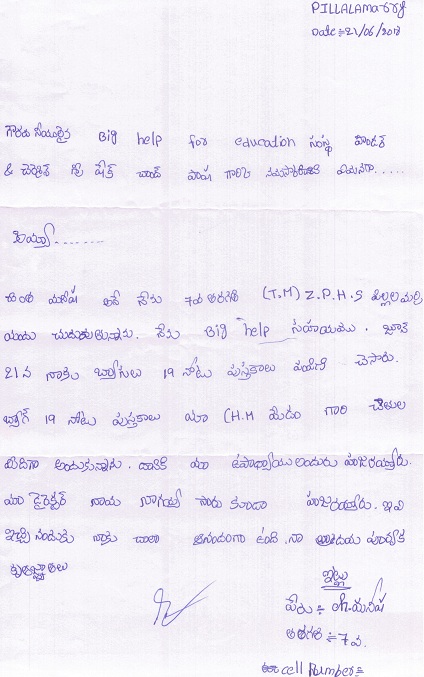 PILLALAMARRI
Date :- 21/06/2018
గౌరవనీయులైన Big help for education సంస్థ ఫౌండర్
& చైర్మెన్ శ్రీ షేక్ చాంద్ పాష గారికి నమస్కరించి వ్రాయునది.....
అయ్యా.......
మనీష అనే నేను 7వ తరగతి (T.M) Z.P.H.S పిల్లలమర్రి
యందు చదువుతున్నాను. నేను Big help సహాయము. జూన్
21న నాకు బ్యాగులు 19 నోటు పుస్తకాలు పంపిణీ చేసారు.
బ్యాగ్ 19 నోటు పుస్తకాలు మా (H.M మేడం గారి చేతుల
మీదిగా అందుకున్నాను. దానికి మా ఉపాధ్యాయులందురు హాజరయ్యారు.
మా డైరెక్టర్ సారు కుండా హాజరయ్యారు. ఇవి
ఇచ్చినందుకు నాకు చాలా ఆనందంగా ఉంది. నా హృదయ పూర్వక
కృతజ్ఞతలు
ఇట్లు
పేరు :- మనీష
తరగతి :- 7వ.
cell number :-